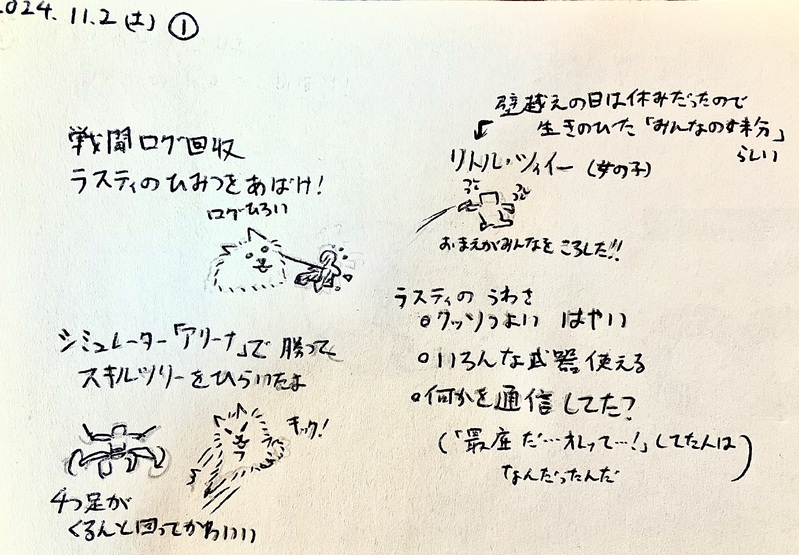 2024. 11.2 (土) ①
戦闘ログ回収
ラスティのひみつをあばけ!
ログひろい
シミュレーター「アリーナ」で勝って
スキルツリーをひらいたよ
キック!
4つ足が
くるんと回ってかわいい
壁越えの日は休みだったので
生きのびた「みんなの妹分」
らしい
リトル・ツィイー (女の子)
おまえがみんなをころした!!
ラスティの うわさ
○クッソつよい はやい
○いろんな武器使える
○何かを通信してた?
(「最座だ…オレって…!」してたんは
なんだったんだ)